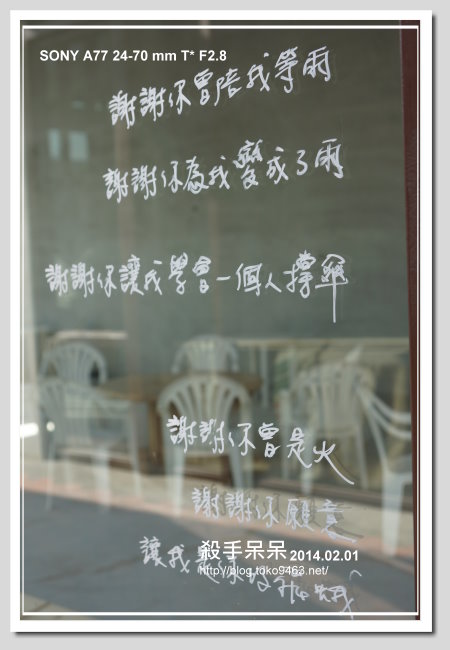 SONY A77 24-70 mm T* F2.8
謝謝你曾陪我等雨
謝謝你為我變成了雨
謝謝你讓我學會一個人撐傘
謝謝你曾是火
謝謝你願意
讓我是你的
殺手呆呆 2014.02.01
http://blog.toko9463.net/